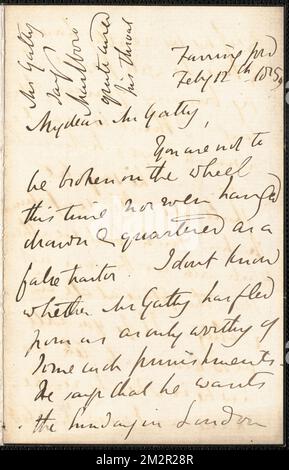 Mrs Gatty
says
Marlboro
quite cured
his throat
Farringford
Feby 12th 1859
My dear Mr Gatty,
You are not to
be broken on the wheel
this time nor even hanged
drawn & quartered as a
false traitor. I don't know
whether Mr Gatty has fled
from us as only worthy of
some such punishments.
He says that he wants
the Sunday in London
alamy
Image ID: 2M2R28R
www.alamy.com